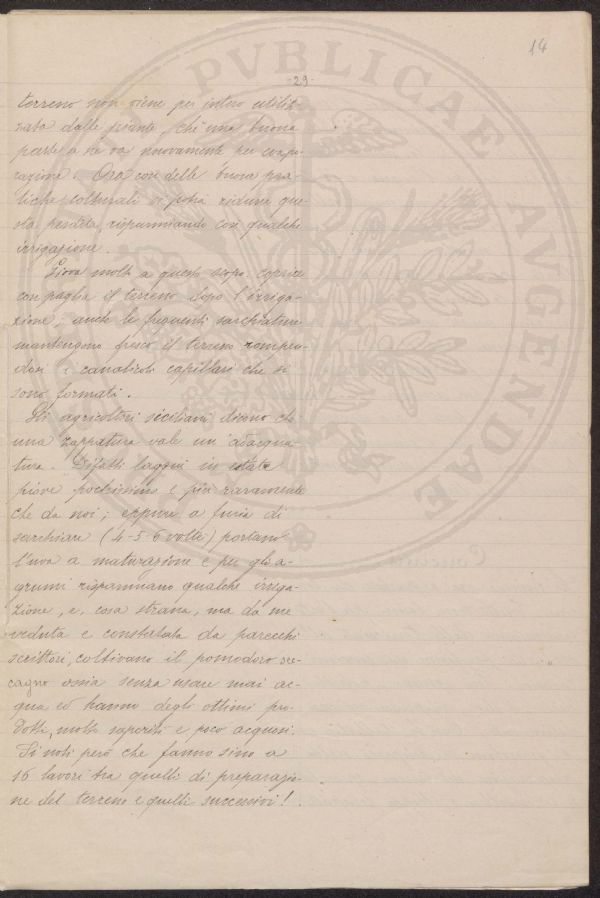 14
-29-
PVBLICAE AVGENDAE
terreno non viene per intero utiliz-
zata dalle piante, chè una buona
parte se ne va nuovamente per evapo-
razione. Ora con delle buone pra-
tiche colturali si potrà ridurre que-
sta perdita, risparmiando così qualche
irrigazione.
Giova molto a questo scopo coprire
con paglia il terreno dopo l'irriga-
zione; anche le frequenti sarchiature
mantengono fresco il terreno rompen-
dosi i canalicoli capillari che si
sono formati.
Gli agricoltori siciliani dicono che
una zappatura vale un'adacqua-
tura. Difatti laggiù in estate
piove pochissimo e più raramente
che da noi; eppure a furia di
sarchiare (4-5-6 volte) portano
l'uva a maturazione e per gli a-
grumi risparmiano qualche irriga-
zione, e, cosa strana, ma da me
veduta e constatata da parecchi
scrittori, coltivano il pomodoro sec-
cagno ossia senza usare mai ac-
qua ed hanno degli ottimi pro-
dotti, molto saporiti e poco acquosi.
Si noti però che fanno sino a
16 lavori tra quelli di preparazio-
ne del terreno e quelli successivi!